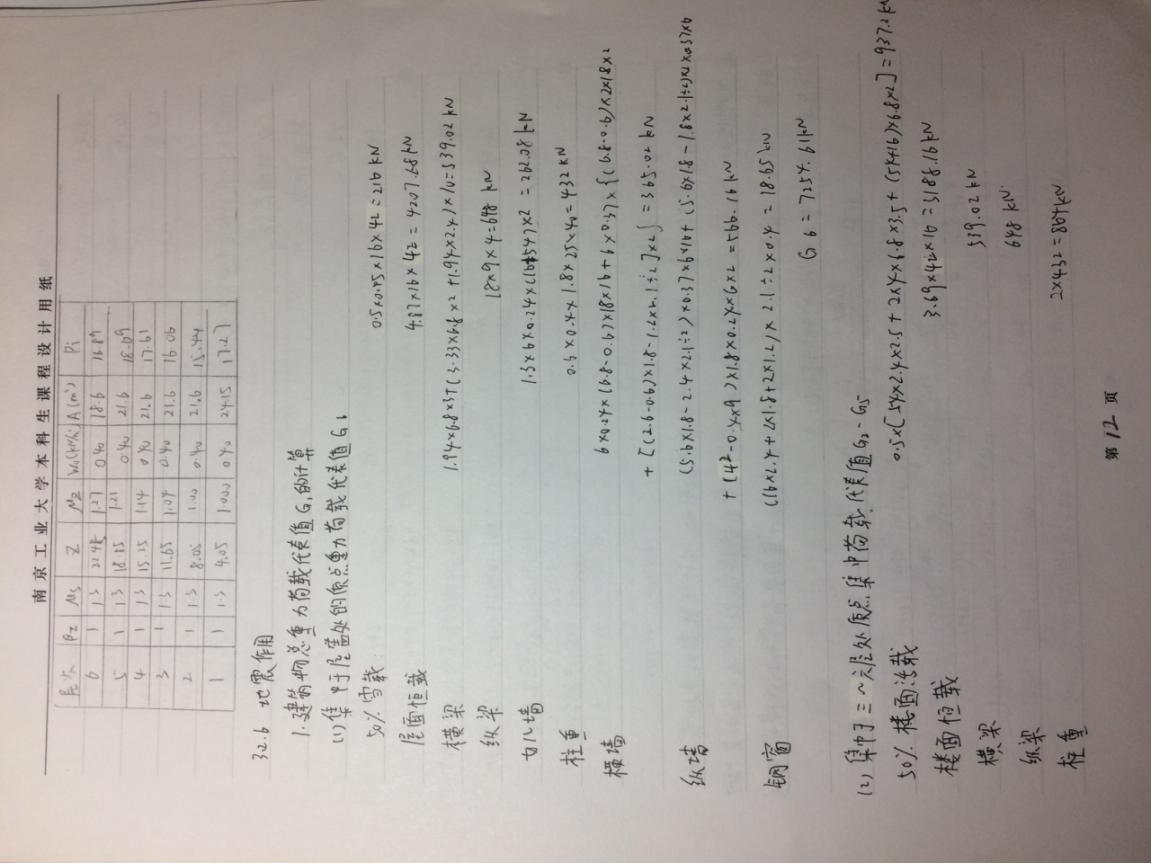 南京工业大学本科生课程设计用纸
层次 βz μs Z μz W₀(kN/㎡) A(㎡) Pi
6 1 1.3 22.45 1.27 0.40 18.6
5 1 1.3 18.85 1.21 0.40 21.6 18.09
4 1 1.3 15.25 1.14 0.40 21.6 17.61
3 1 1.3 11.65 1.04 0.40 21.6 16.06
2 1 1.3 8.05 1.00 0.40 21.6 15.44
1 1 1.3 4.05 1.000 0.40 24.15 17.27
3.2.6 地震作用
1.建筑物总重力荷载代表值Gi的计算
(1)集中于屋盖处的质点重力荷载代表值G6
50%雪载: 0.5×0.45×16×42=216kN
屋面恒载 4.87×16×42=4207.68kN
横梁 1.94×6.8×3+(3.33×6.8×2+1.94×2.4)×10=539.02kN
纵梁 18×9×4=648kN
女儿墙 1.3×6×0.24×(16+54)×2=262.08kN
柱重 0.5×0.4×1.8×25×40=432kN
横墙 6×0.24×(6.8-0.6)×18×16+6×0.37×{(6.8-0.6)×2×1.8×2
+[(2.6-0.6)×1.8-1.2×2.1÷2]×2}=365.02kN
纵墙 (5.6×1.8-2.4×2.1÷2)×0.37×6×16+(5.6×1.8-1.8×2.1÷2)×2×0.37×6
+(42-0.4×9)×1.8×0.24×6×2=566.16kN
钢窗 (16×2.4+2×1.8+2×1.2)×2.1÷2×0.4=18.65kN
G6=7254.61kN
(2)集中于二~六层处质点集中荷载代表值G2~G5
50%楼面活载 0.5×[54×2.4×2.5+2×4×6.8×3.5+(5×4+16)×6.8×2]=937.2kN
楼面恒载 3.69×42×16=3188.16kN
横梁 539.02kN
纵梁 648kN
柱重 2×432=864kN
第12页